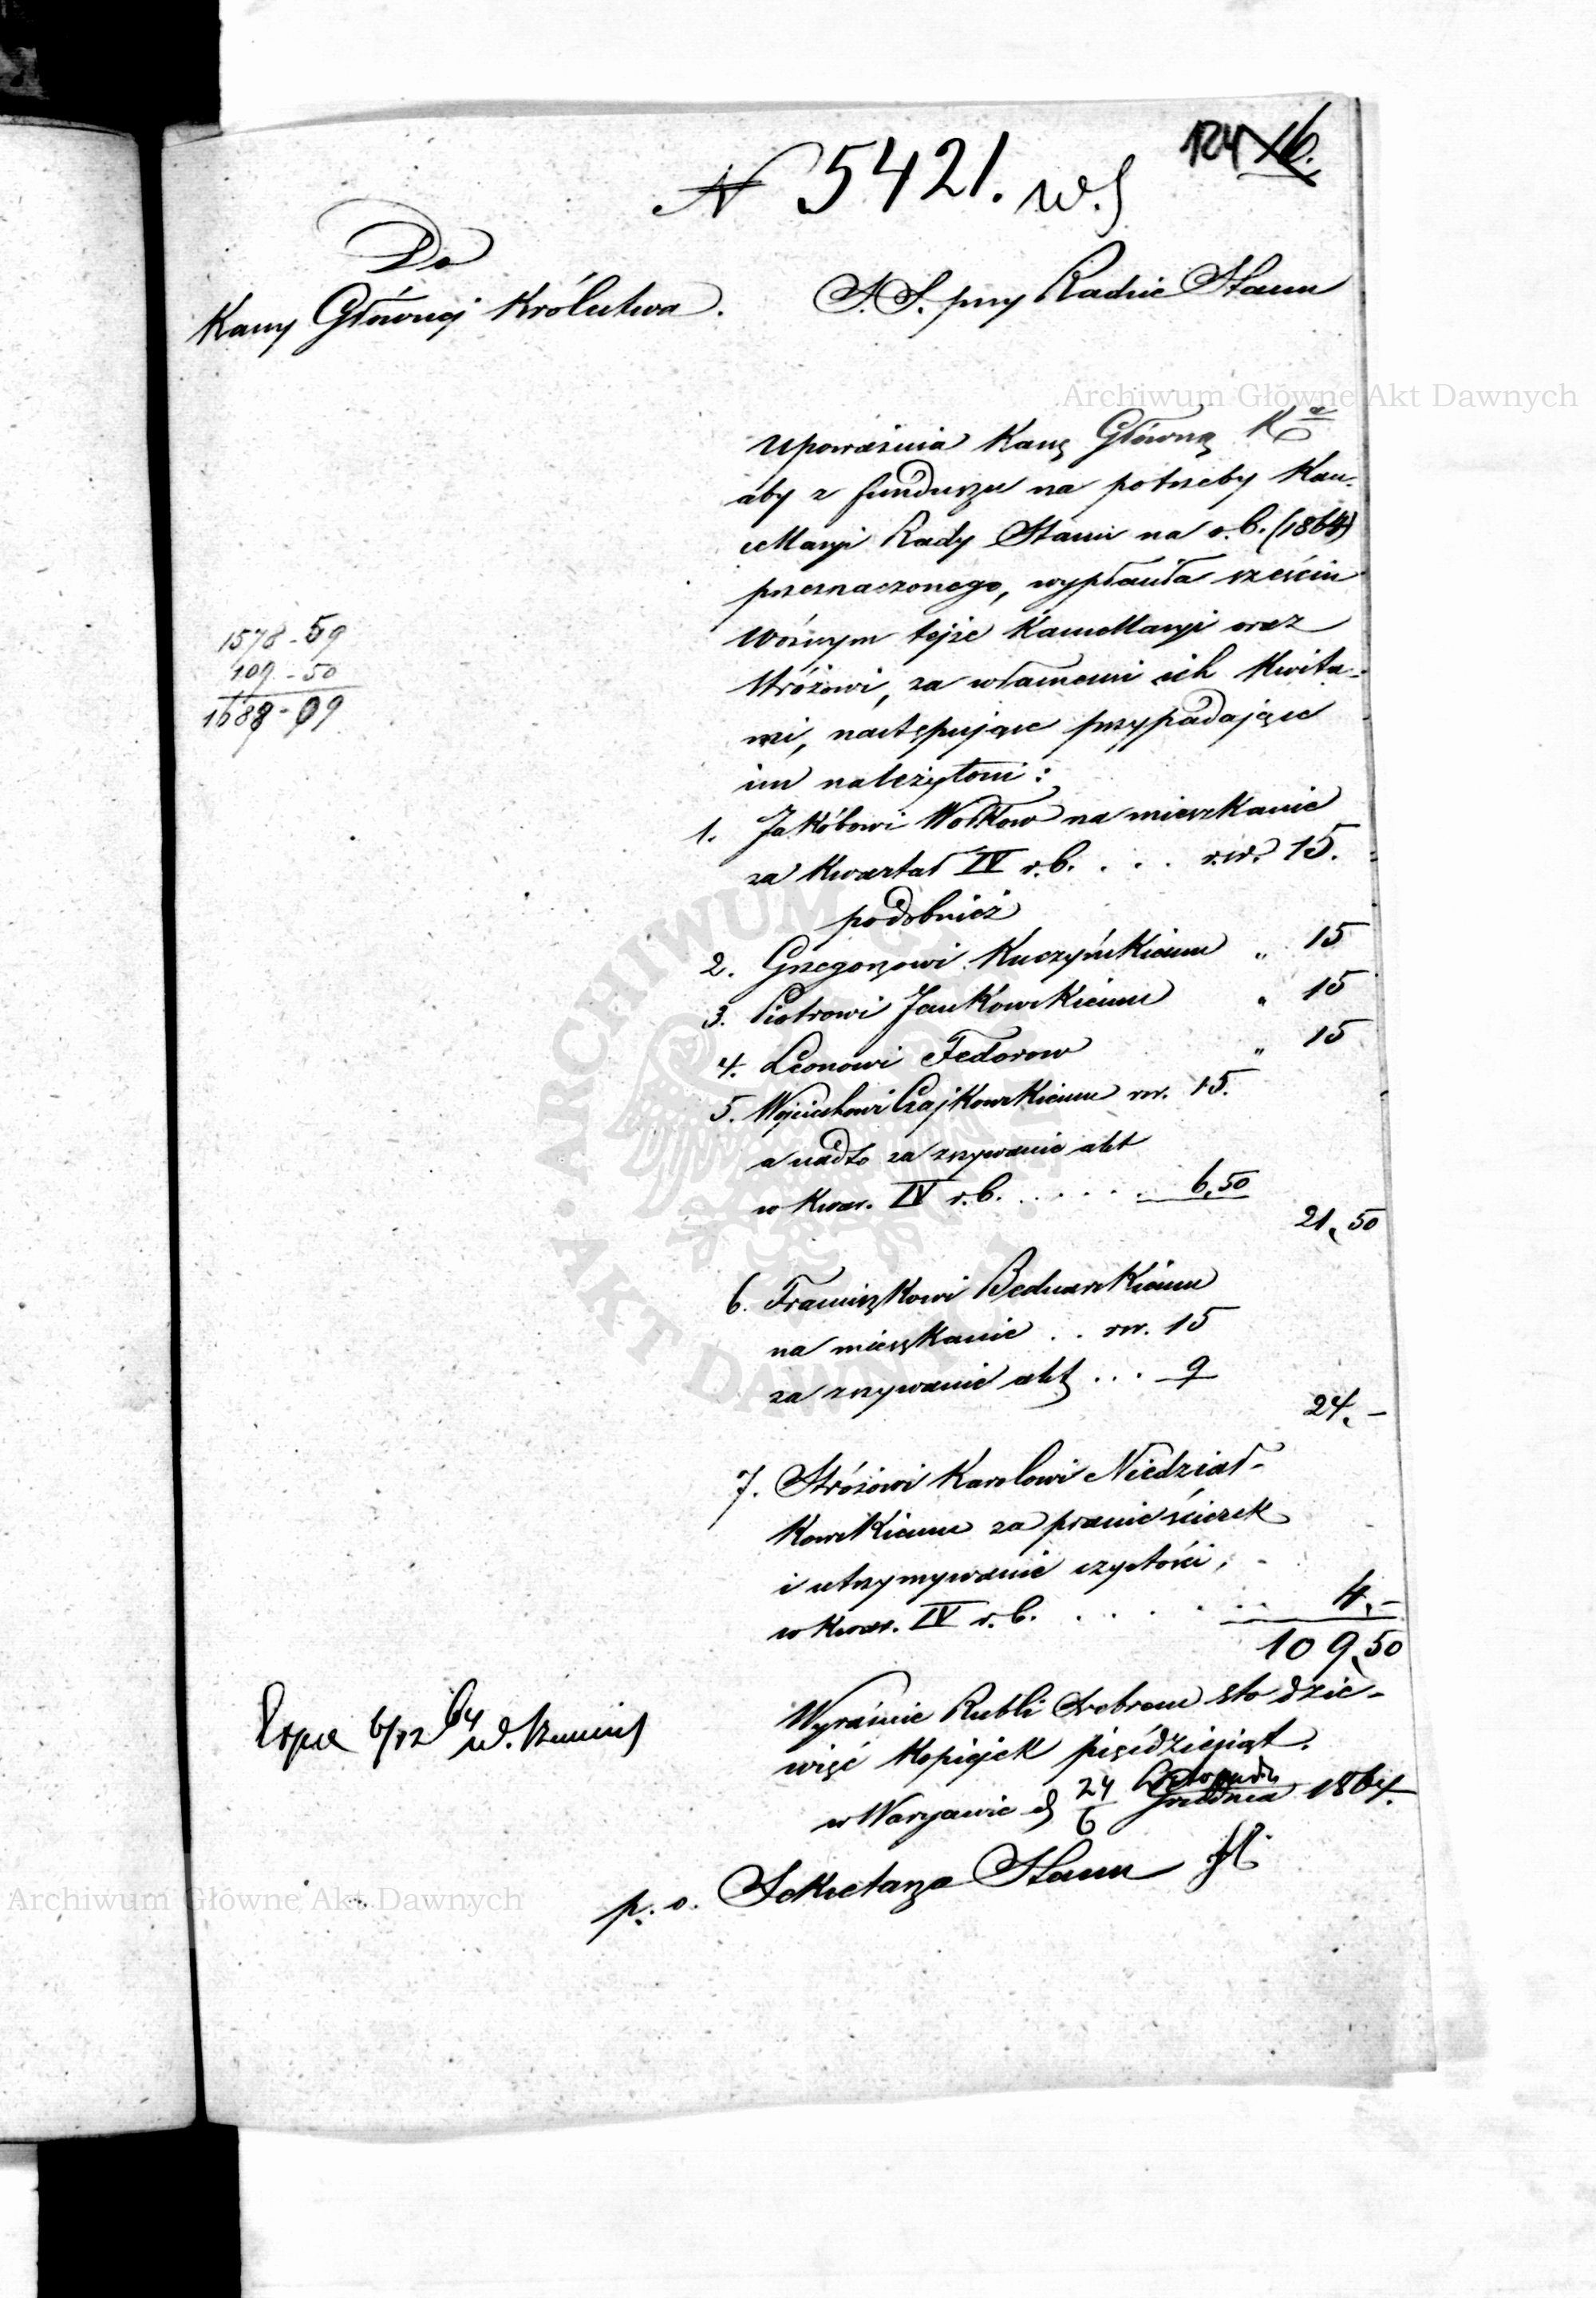 124 16.
N 5421. w.s
Do
Kassy Głównej Królestwa.
S. S. przy Radzie Stanu
Archiwum Główne Akt Dawnych
upoważnia Kassę Główną Kа
aby z funduszu na potrzeby Kan-
cellaryi Rady Stanu na r. b. (1864)
przeznaczonego, wypłaciła sześciu
Woźnym tejże Kancellaryi oraz
Stróżowi, za własnemi ich Kwita-
mi, następujące przypadające
im należytości:
1578-59
109-50
1688-09
1. Jakóbowi Wołkow na mieszkanie
za Kwartał IV r. b. . . . rsr. 15.
podobnież
2. Grzegorzowi Kuczyńskiemu „ 15
3. Piotrowi Jankowskiemu „ 15
4. Leonowi Fedorow „ 15
5. Wojciechowi Czajkowskiemu rsr. 15.
a nadto za zszywanie akt
w Kwar. IV r. b. . . . . . 6,50
21,50
6. Franciszkowi Bednarskiemu
na mieszkanie . . rsr. 15
za zszywanie akt . . . 9
24,-
7. Stróżowi Karolowi Niedział-
kowskiemu za pranie ścierek
i utrzymywanie czystości,
w kwar. IV r. b. . . . . . . 4,-
109,50
Wyraźnie Rubli Srebrem sto dzie-
więć Kopiejek pięćdziesiąt.
w Warszawie d 24/6 Listopada/Grudnia 1864.
Exp 6/12 64
p. o. Sekretarza Stanu
Archiwum Główne Akt Dawnych
ARCHIWUM GŁÓWNE AKT DAWNYCH